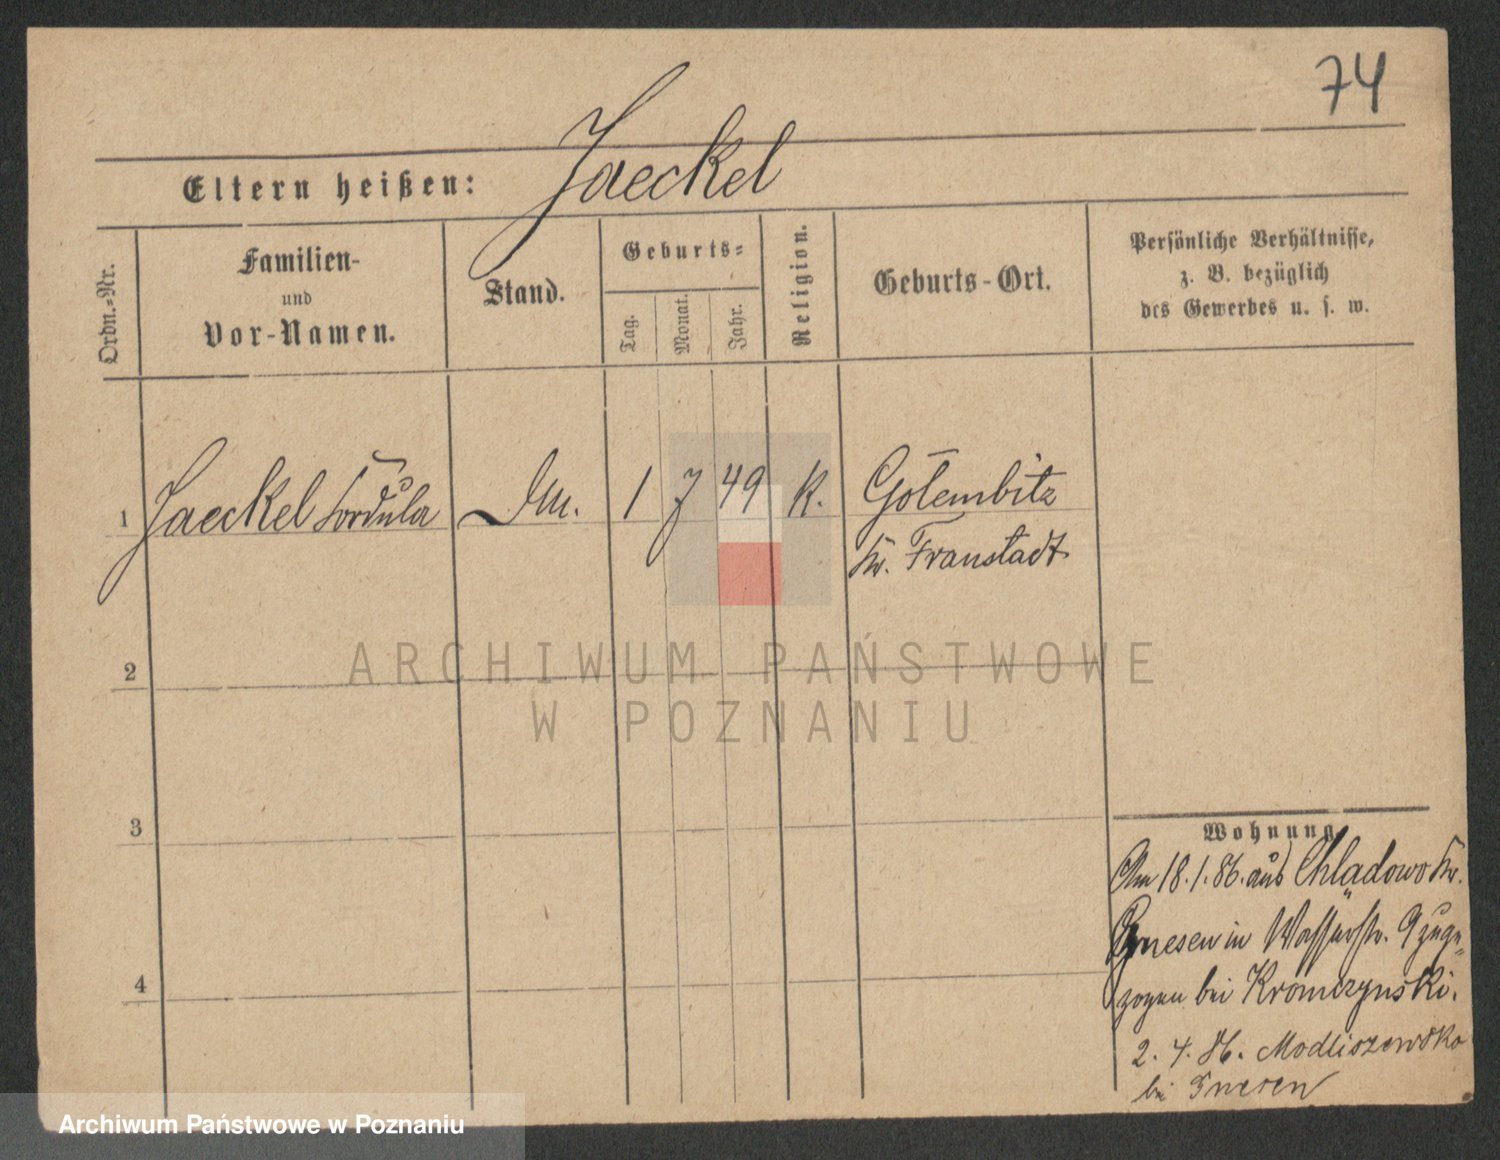 74
Eltern heißen: Jaeckel
Ordn.-Nr.
Familien-
und
Vor-Namen.
Stand.
Geburts-
Tag.
Monat.
Jahr.
Religion.
Geburts-Ort.
Persönliche Verhältnisse,
z. B. bezüglich
des Gewerbes u. s. w.
1 Jaeckel Cordula 1 7 49 K. Golembitz
Kr. Fraustadt
2
3
4
Wohnung
Am 18.1.86. aus Chlądowo Kr.
Gnesen in Wasserstr. 9 zuge-
zogen bei Kromczynski.
2. 4. 86. Modliszewsko
bei Gnesen
ARCHIWUM PAŃSTWOWE
W POZNANIU
Archiwum Państwowe w Poznaniu